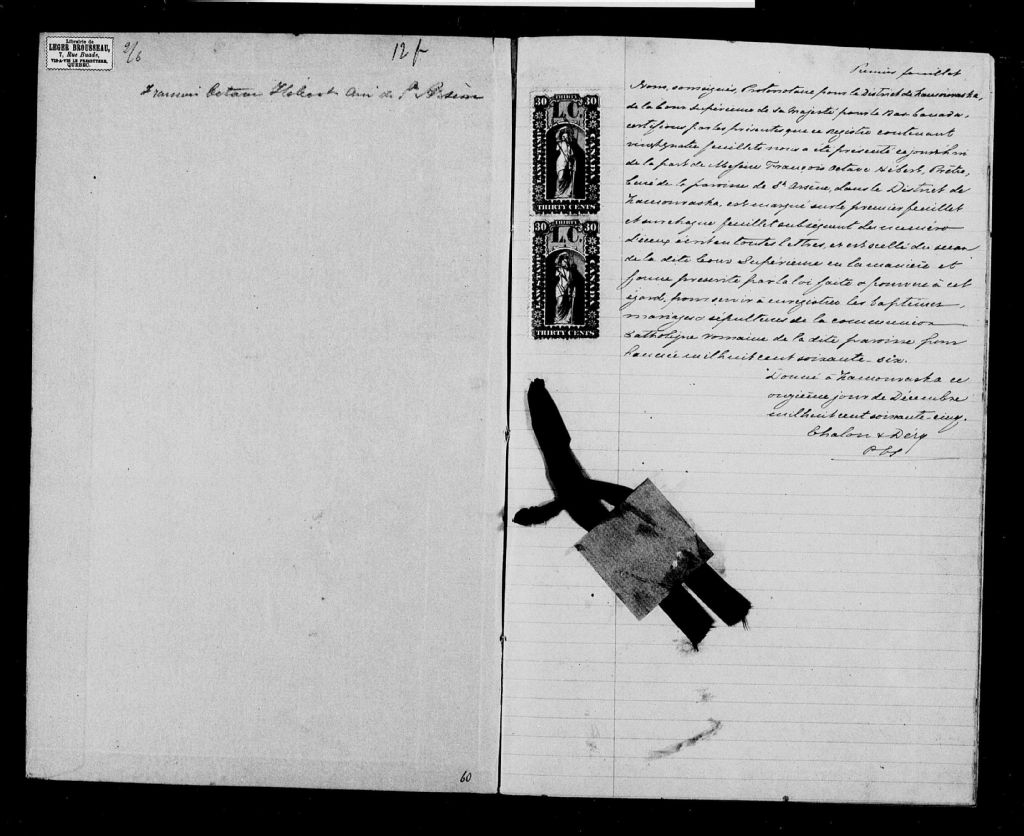 Librairie de
LEGER BROUSSEAU,
7, Rue Buade,
VIS-A-VIS LE PRESBYTERE,
QUEBEC.
2/6
12 f
François Octave Hébert Curé de St Arsène
60
THIRTY
30 L.C. 30
LAW STAMP
CANADA
THIRTY CENTS
THIRTY
30 L.C. 30
LAW STAMP
CANADA
THIRTY CENTS
Premier feuillet
Nous, soussignés, Protonotaire pour le District de Kamouraska,
de la Cour Supérieure de Sa Majesté pour le Bas-Canada,
certifions par les présentes que ce Registre contenant
vingt quatre feuillets nous a été présenté ce jourd'hui
de la part de Messire François Octave Hébert, Prêtre,
Curé de la paroisse de St Arsène, dans le District de
Kamouraska, est marqué sur le premier feuillet
et sur chaque feuillet subséquent du numéro
d'iceux écrit en toutes lettres, et est scellé du sceau
de la dite Cour Supérieure en la manière et
forme prescrite par la loi faite & pourvue à cet
égard, pour servir à enregistrer les baptêmes,
mariages & sépultures de la communion
Catholique romaine de la dite paroisse pour
l'année mil huit cent soixante-six.
Donné à Kamouraska ce
onzième jour de Décembre
mil huit cent soixante-cinq.
Chalou & Dery
P C S